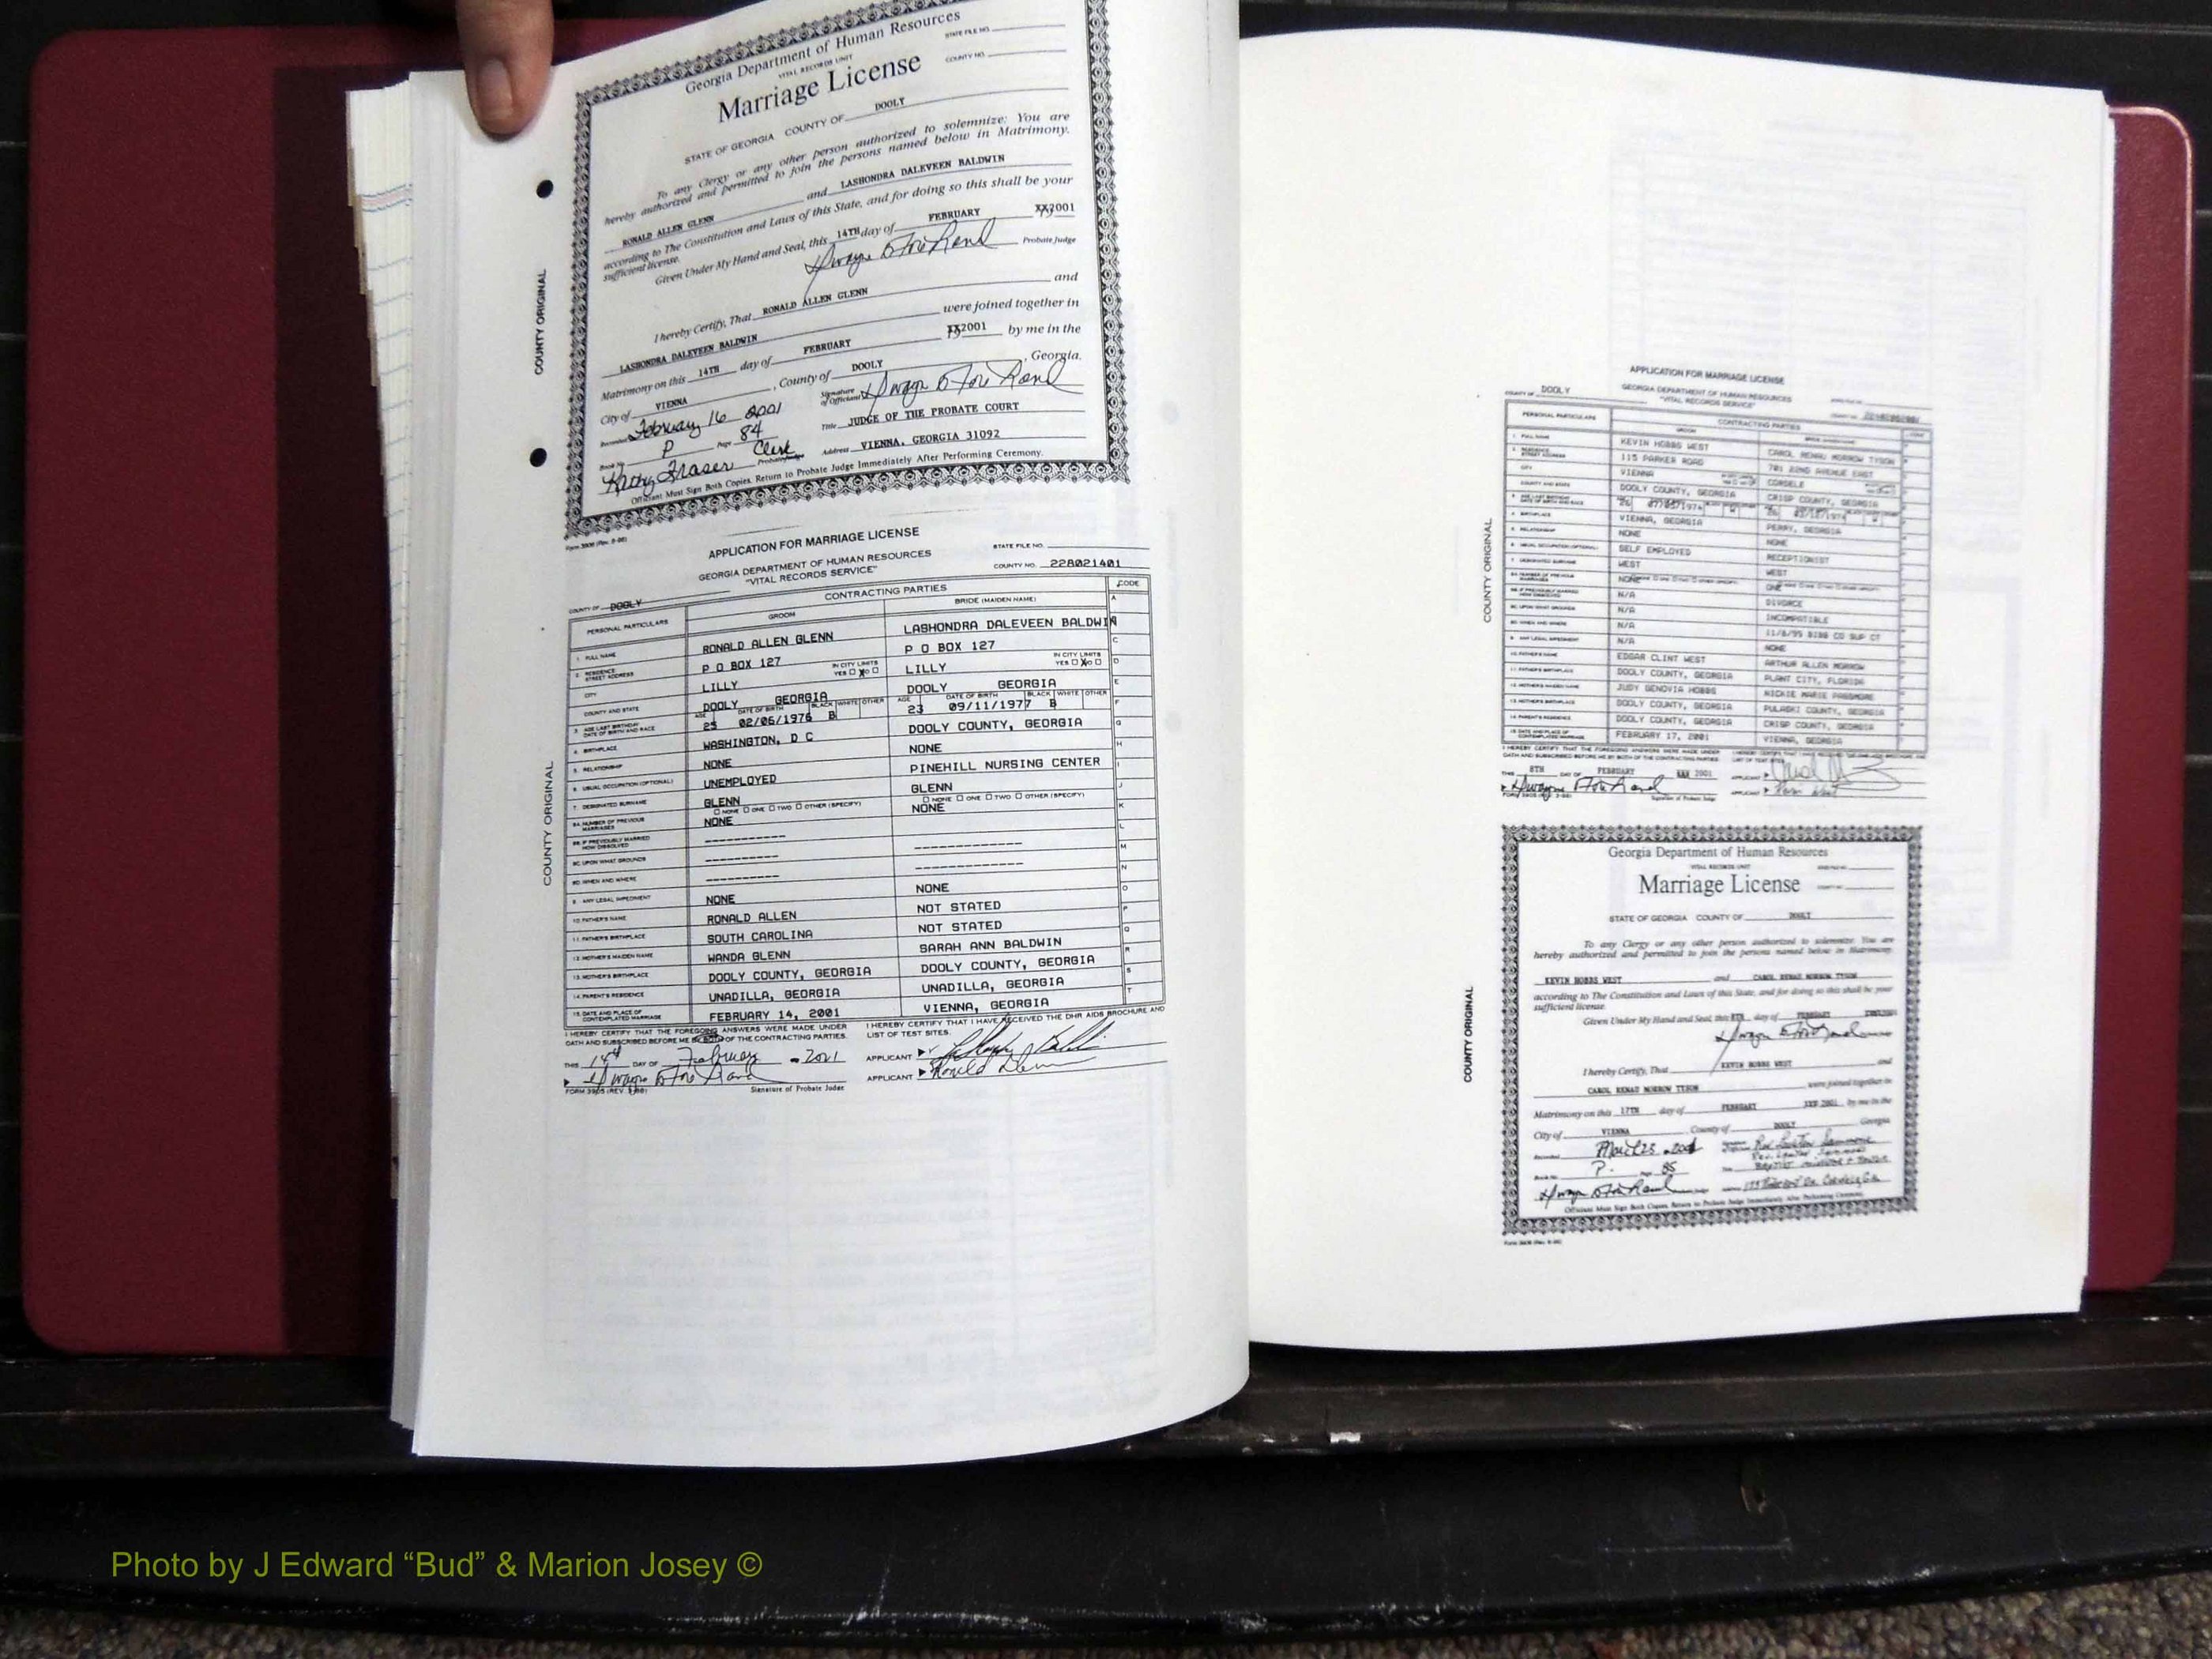 Georgia Department of Human Resources
VITAL RECORDS UNIT
STATE FILE NO.
COUNTY NO.
Marriage License
STATE OF GEORGIA COUNTY OF DOOLY
To any Clergy or any other person authorized to solemnize: You are
hereby authorized and permitted to join the persons named below in Matrimony.
RONALD ALLEN GLENN and LASHONDRA DALEVEEN BALDWIN
according to The Constitution and Laws of this State, and for doing so this shall be your
sufficient license.
Given Under My Hand and Seal, this 14TH day of FEBRUARY XX2001
Probate Judge
I hereby Certify, That RONALD ALLEN GLENN and
LASHONDRA DALEVEEN BALDWIN were joined together in
Matrimony on this 14TH day of FEBRUARY 2001 by me in the
City of VIENNA, County of DOOLY, Georgia.
Recorded February 16 2001
Signature of Officiant
Book No. P Page 84
Title JUDGE OF THE PROBATE COURT
Kathy Fraser Clerk
Address VIENNA, GEORGIA 31092
Officiant Must Sign Both Copies. Return to Probate Judge Immediately After Performing Ceremony.
COUNTY ORIGINAL
APPLICATION FOR MARRIAGE LICENSE
GEORGIA DEPARTMENT OF HUMAN RESOURCES
"VITAL RECORDS SERVICE"
STATE FILE NO.
COUNTY NO. 228021401
COUNTY OF DOOLY
PERSONAL PARTICULARS CONTRACTING PARTIES CODE
GROOM BRIDE (MAIDEN NAME)
1. FULL NAME RONALD ALLEN GLENN LASHONDRA DALEVEEN BALDWIN
2. RESIDENCE STREET ADDRESS P O BOX 127 P O BOX 127
IN CITY LIMITS YES NO IN CITY LIMITS YES NO
CITY LILLY LILLY
COUNTY AND STATE DOOLY GEORGIA DOOLY GEORGIA
3. AGE LAST BIRTHDAY DATE OF BIRTH AND RACE 25 02/06/1976 B 23 09/11/1977 B
4. BIRTHPLACE WASHINGTON, D C DOOLY COUNTY, GEORGIA
5. RELATIONSHIP NONE NONE
6. USUAL OCCUPATION (OPTIONAL) UNEMPLOYED PINEHILL NURSING CENTER
7. DESIGNATED SURNAME GLENN GLENN
8A. NUMBER OF PREVIOUS MARRIAGES NONE NONE
8B. IF PREVIOUSLY MARRIED HOW DISSOLVED
8C. UPON WHAT GROUNDS
8D. WHEN AND WHERE
9. ANY LEGAL IMPEDIMENT NONE NONE
10. FATHER'S NAME RONALD ALLEN NOT STATED
11. FATHER'S BIRTHPLACE SOUTH CAROLINA NOT STATED
12. MOTHER'S MAIDEN NAME WANDA GLENN SARAH ANN BALDWIN
13. MOTHER'S BIRTHPLACE DOOLY COUNTY, GEORGIA DOOLY COUNTY, GEORGIA
14. PARENT'S RESIDENCE UNADILLA, GEORGIA UNADILLA, GEORGIA
15. DATE AND PLACE OF CONTEMPLATED MARRIAGE FEBRUARY 14, 2001 VIENNA, GEORGIA
I HEREBY CERTIFY THAT THE FOREGOING ANSWERS WERE MADE UNDER
OATH AND SUBSCRIBED BEFORE ME BY BOTH OF THE CONTRACTING PARTIES.
I HEREBY CERTIFY THAT I HAVE RECEIVED THE DHR AIDS BROCHURE AND
LIST OF TEST SITES.
THIS 14th DAY OF February 2001
APPLICANT
APPLICANT Ronald Glenn
Signature of Probate Judge
COUNTY ORIGINAL
APPLICATION FOR MARRIAGE LICENSE
GEORGIA DEPARTMENT OF HUMAN RESOURCES
"VITAL RECORDS SERVICE"
COUNTY OF DOOLY
PERSONAL PARTICULARS CONTRACTING PARTIES
GROOM
KEVIN HOBBS WEST CAROL RENAU MORROW TYSON
115 PARKER ROAD
VIENNA CORDELE
DOOLY COUNTY, GEORGIA CRISP COUNTY, GEORGIA
VIENNA, GEORGIA PERRY, GEORGIA
NONE NONE
SELF EMPLOYED RECEPTIONIST
WEST WEST
NONE ONE
N/A DIVORCE
N/A INCOMPATIBLE
N/A
N/A NONE
EDGAR CLINT WEST ARTHUR ALLEN MORROW
DOOLY COUNTY, GEORGIA PLANT CITY, FLORIDA
JUDY GENOVIA HOBBS
DOOLY COUNTY, GEORGIA PULASKI COUNTY, GEORGIA
DOOLY COUNTY, GEORGIA CRISP COUNTY, GEORGIA
FEBRUARY 17, 2001 VIENNA, GEORGIA
THIS 8TH DAY OF FEBRUARY 2001
COUNTY ORIGINAL
Georgia Department of Human Resources
VITAL RECORDS UNIT
Marriage License
STATE OF GEORGIA COUNTY OF DOOLY
To any Clergy or any other person authorized to solemnize: You are
hereby authorized and permitted to join the persons named below in Matrimony.
KEVIN HOBBS WEST and CAROL RENAU MORROW TYSON
according to The Constitution and Laws of this State, and for doing so this shall be your
sufficient license.
Given Under My Hand and Seal, this 8TH day of FEBRUARY
I hereby Certify, That KEVIN HOBBS WEST and
CAROL RENAU MORROW TYSON were joined together in
Matrimony on this 17TH day of FEBRUARY 2001 by me in the
City of VIENNA County of DOOLY Georgia
P. Page 85
Officiant Must Sign Both Copies. Return to Probate Judge Immediately After Performing Ceremony.
COUNTY ORIGINAL
Photo by J Edward “Bud” & Marion Josey ©